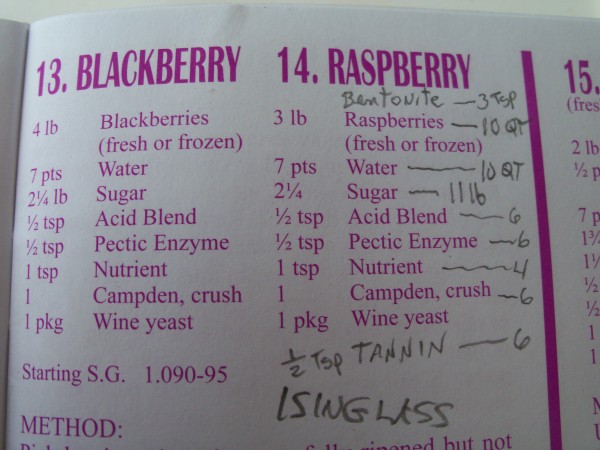 13. BLACKBERRY
4 lb Blackberries
(fresh or frozen)
7 pts Water
2¼ lb Sugar
½ tsp Acid Blend
½ tsp Pectic Enzyme
1 tsp Nutrient
1 Campden, crush
1 pkg Wine yeast
Starting S.G. 1.090-95
METHOD:
14. RASPBERRY
Bentonite — 3 Tsp
3 lb Raspberries — 10 QT
(fresh or frozen)
7 pts Water — 10 QT
2¼ Sugar — 11 lb
½ tsp Acid Blend — 6
½ tsp Pectic Enzyme — 6
1 tsp Nutrient — 4
1 Campden, crush — 6
1 pkg Wine yeast
½ Tsp TANNIN — 6
ISINGLASS
but not
15.
(fres
2 lb
½ p
7 p
1¾
1½
½
½
1
1